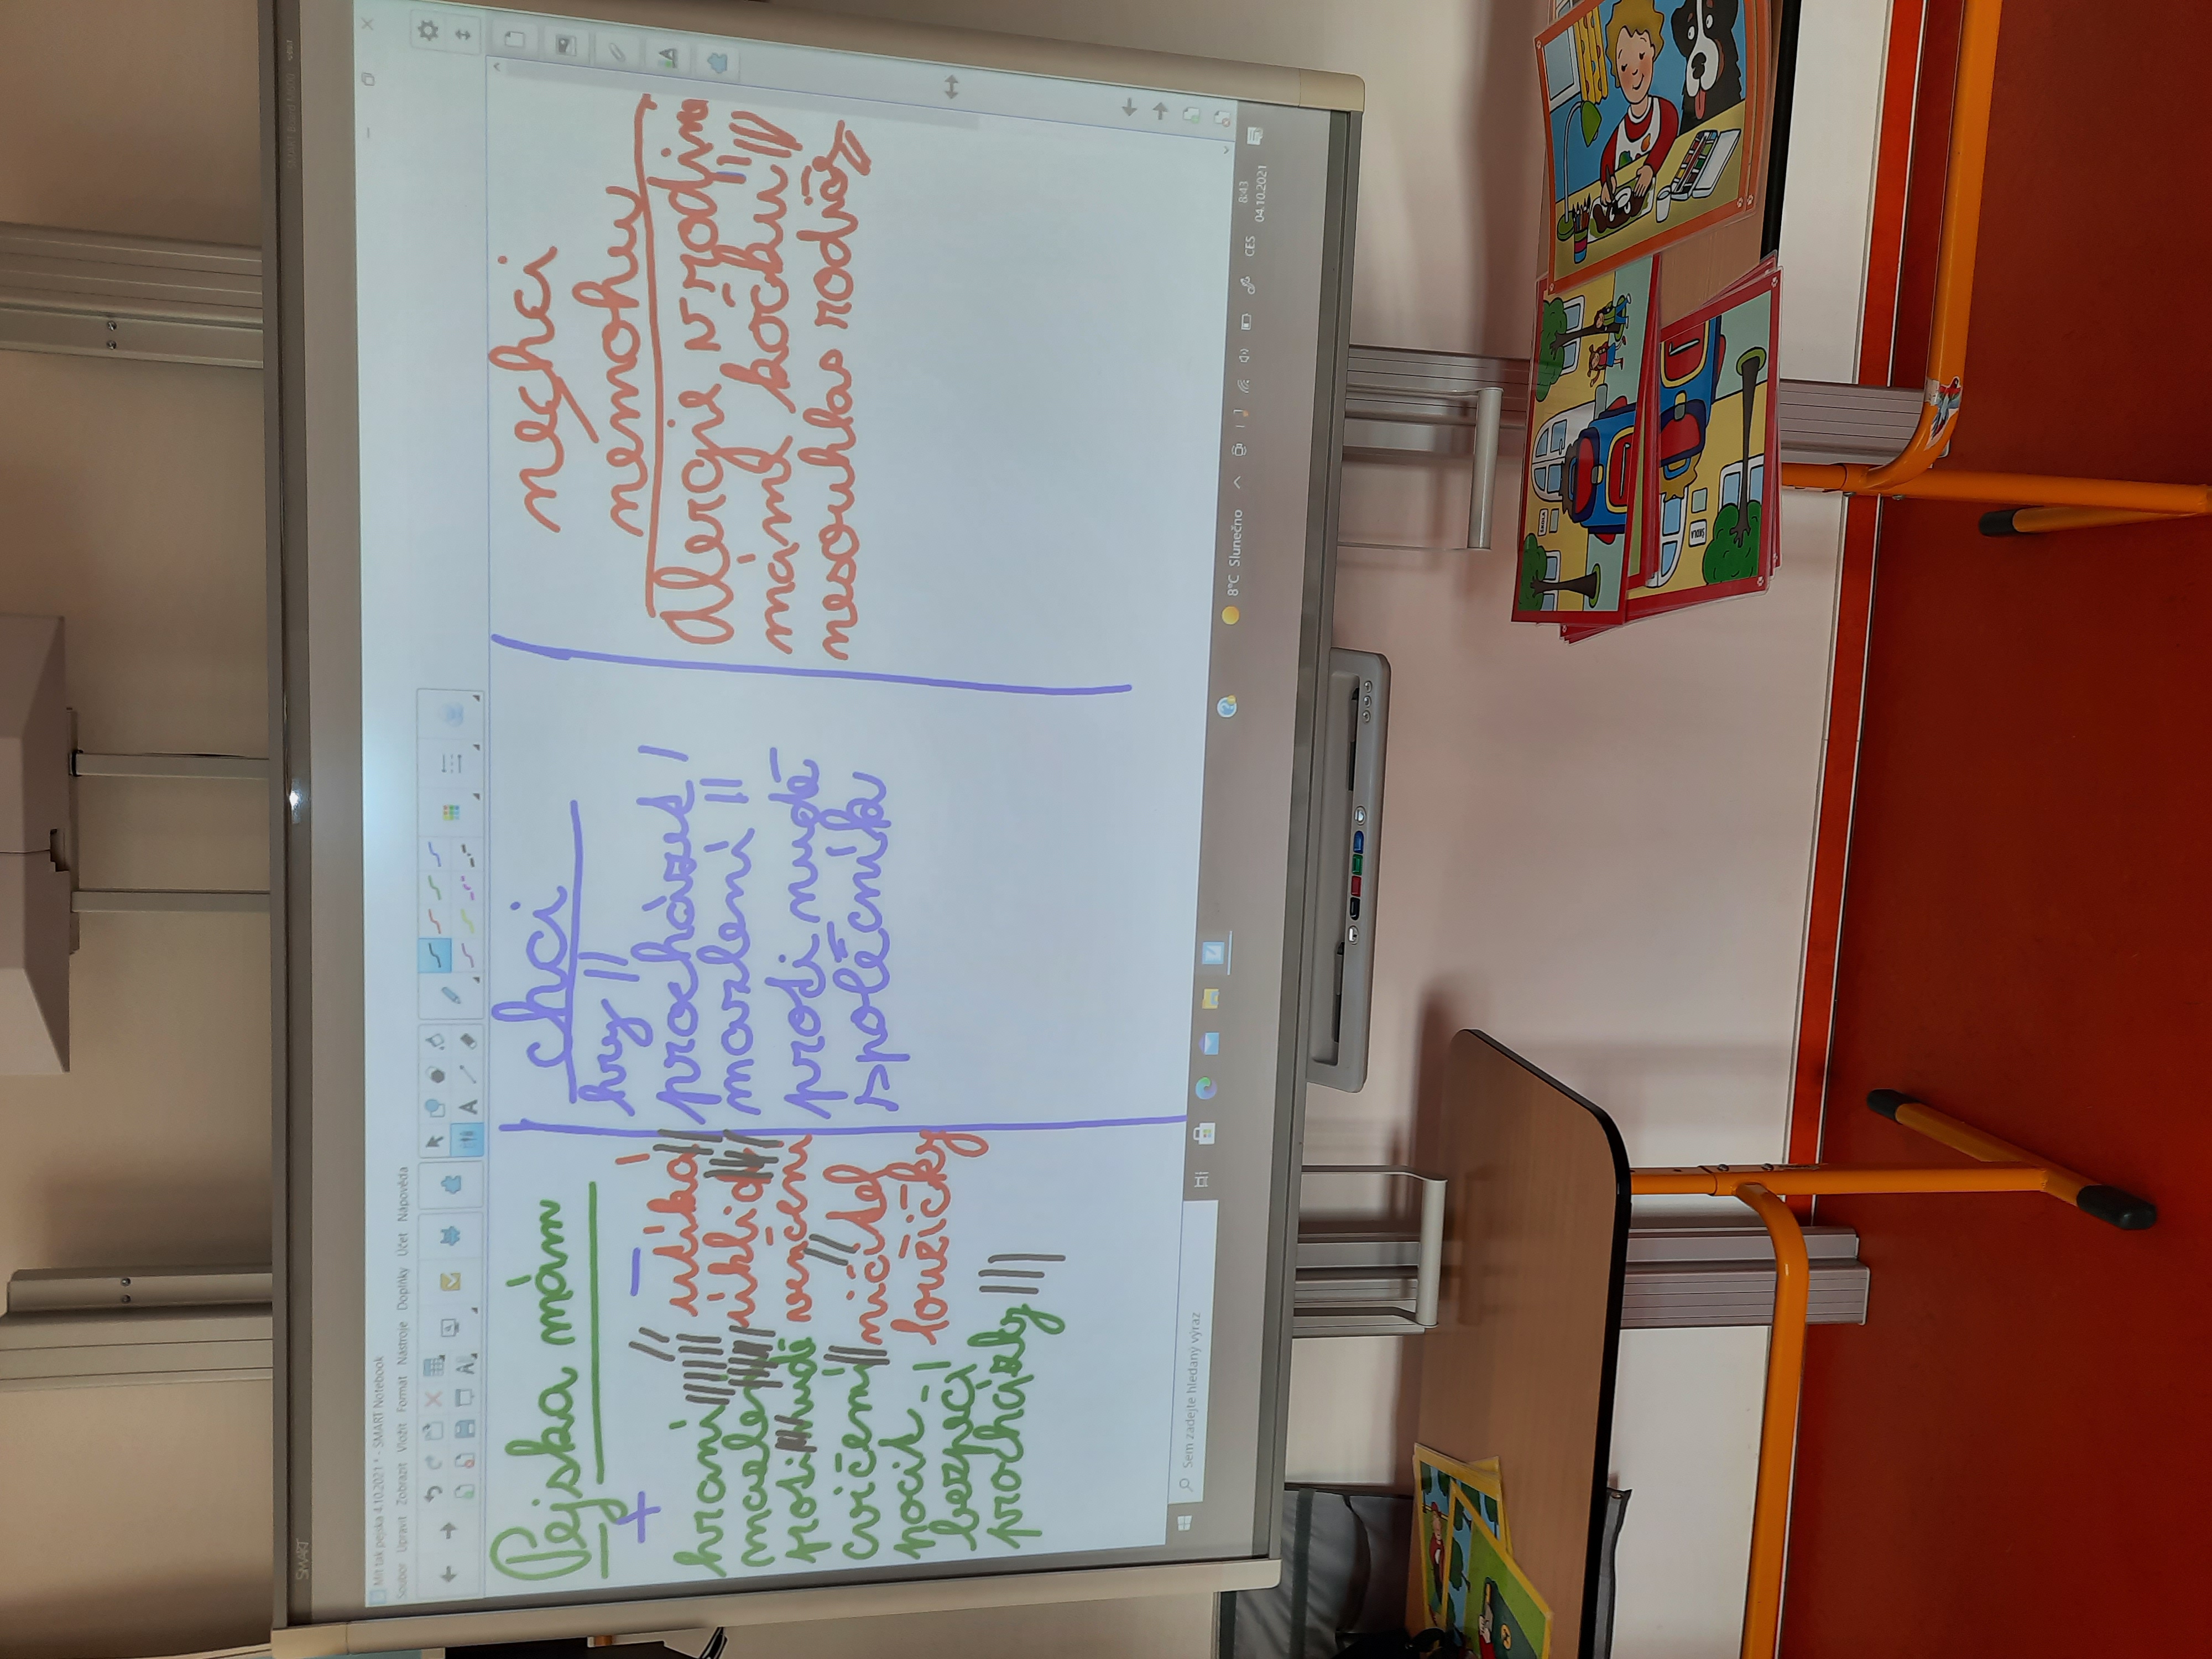 SMART
Mít tak pejska 4.10.2021 * - SMART Notebook
Soubor Upravit Zobrazit Vložit Formát Nástroje Doplňky Účet Nápověda
Pejska mám
+ -
hraní
proti nudě
cvičení
pocit
bezpečí
procházky
utíká
úklid
venčení
ničitel
loužičky
chci
hry
procházet
mazlení
proti nudě
společník
nechci
nemohu
Alergie v rodjin
máme kočku
nesouhlas rodičů
Sem zadejte hledaný výraz
8°C Slunečno
CES
8:43
04.10.2021
ŠKOLA